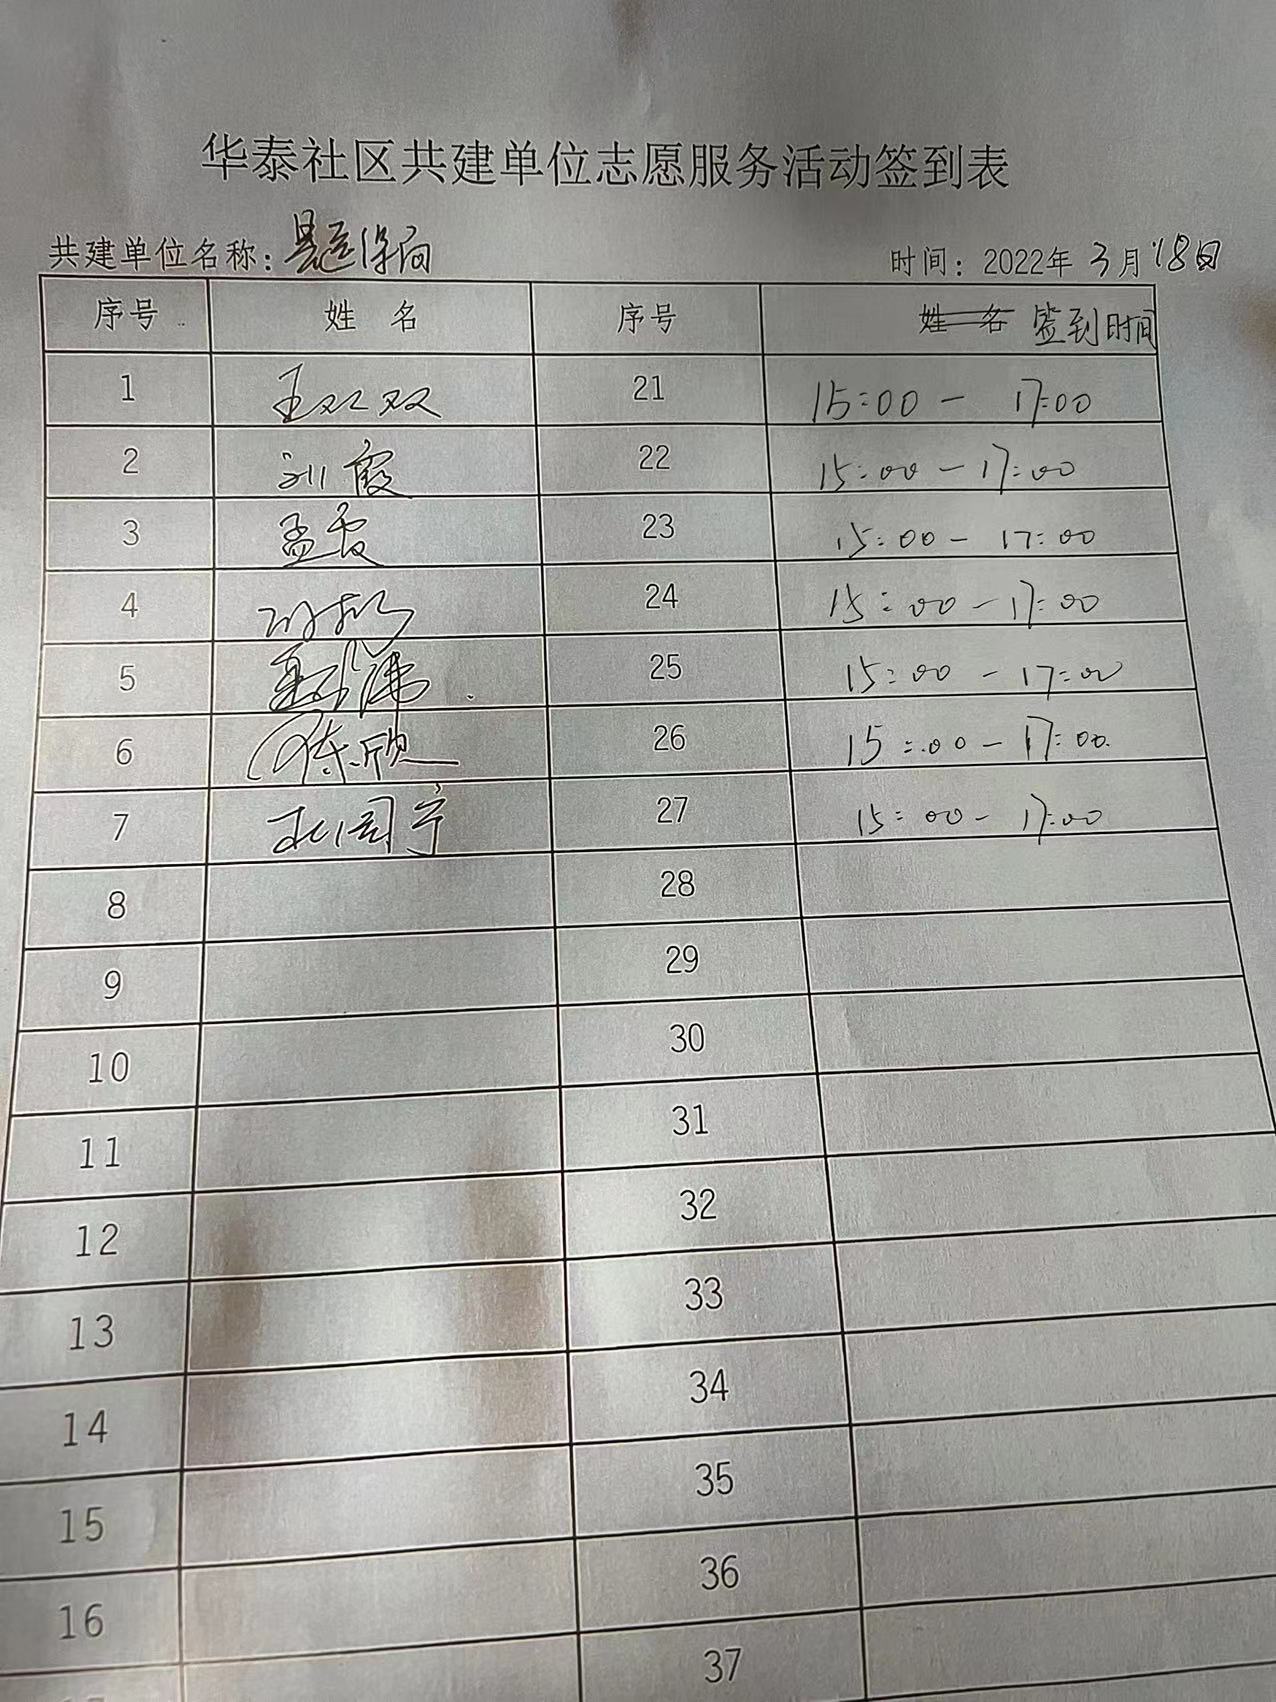 华泰社区共建单位志愿服务活动签到表
共建单位名称：县医保局 时间：2022年 3月18日
序号 姓 名 序号 姓 名 签到时间
1 王双双 21 15:00 - 17:00
2 刘霞 22 15:00 - 17:00
3 孟霞 23 15:00 - 17:00
4 24 15:00 - 17:00
5 25 15:00 - 17:00
6 陈欣 26 15:00 - 17:00
7 27 15:00 - 17:00
8 28
9 29
10 30
11 31
12 32
13 33
14 34
15 35
16 36
37